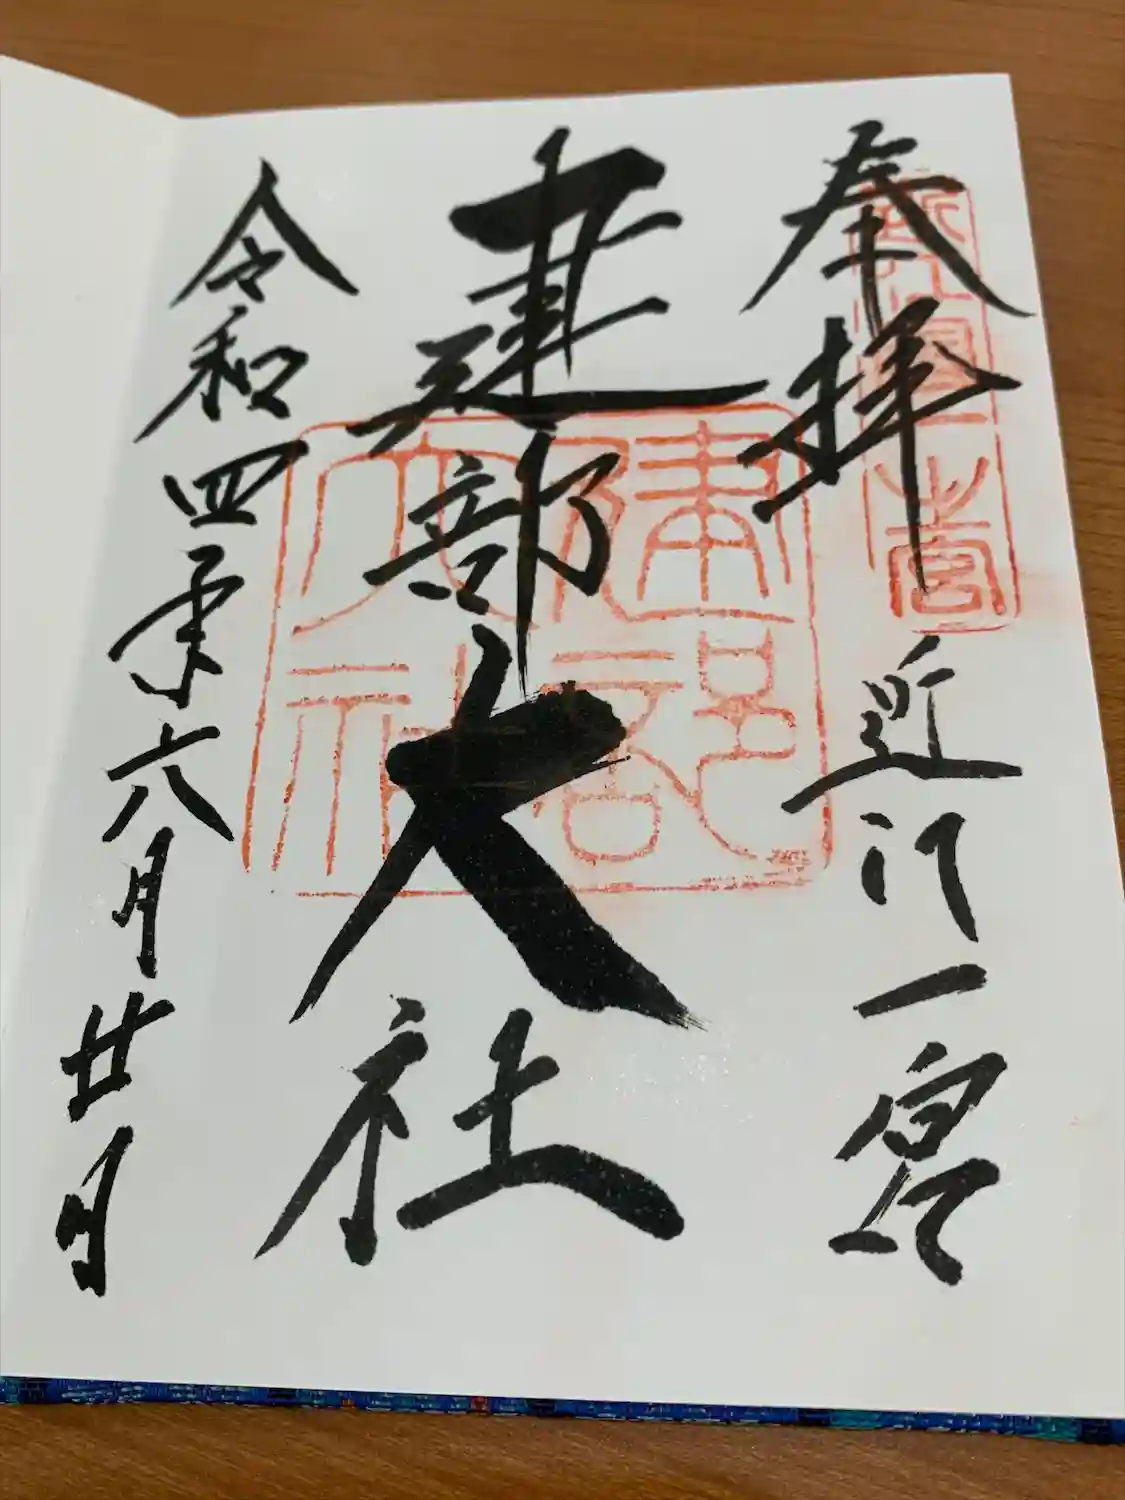 奉拝
近江一宮
近江国一之宮
建部大社
建部大社
令和四年六月廿日